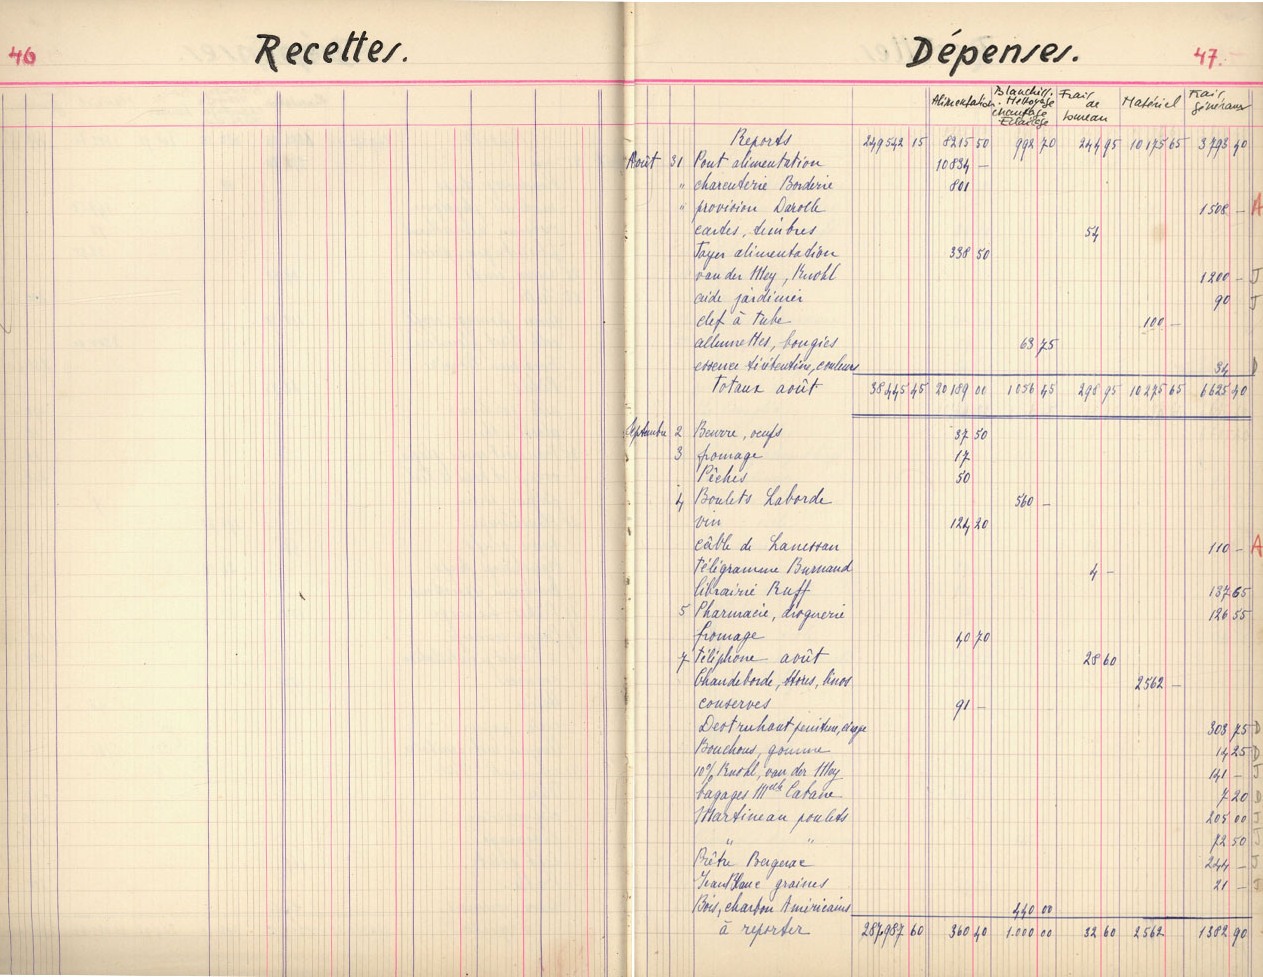 46
Recettes.
Dépenses.
47.
Alimentation Blanchiss. Nettoyage Chauffage Eclairage Frais de bureau Matériel Frais généraux
Reports 249542 15 8215 50 992 70 244 95 10175 65 3793 40
Août 31 Pont alimentation 10834 —
" charcuterie Borderie 801
" provision Darolle 1508 — A
cartes, timbres 54
Foyer alimentation 338 50
van der Mey, Knohl 1200 — J
aide jardinier 90 J
clef à tube 100 —
allumettes, bougies 63 75
essence térébentine, couleurs 34 D
Totaux août 38445 45 20189 00 1056 45 298 95 10275 65 6625 40
Septembre 2 Beurre, oeufs 37 50
3 fromage 17
Pêches 50
4 Boulets Laborde 560 —
vin 124 20
câble de Lanessan 110 — A
télégramme Burnand 4 —
librairie Ruff 137 65
5 Pharmacie, droguerie 126 55
fromage 40 70
7 Téléphone août 28 60
Chandeborde, stores, linos 2562 —
conserves 91 —
Destruhaut peinture, cirage 303 75 D
Bouchons, gomme 14 25 D
10% Knohl, van der Mey 141 — J
bagages Melle Cabane 7 20 D
Martineau poulets 205 00 J
" " 72 50 J
Prêtre Bergerac 244 — J
Jean Blanc graines 21 — J
Bois, charbon Américains 440 00
à reporter 287987 60 360 40 1.000 00 32 60 2562 1382 90